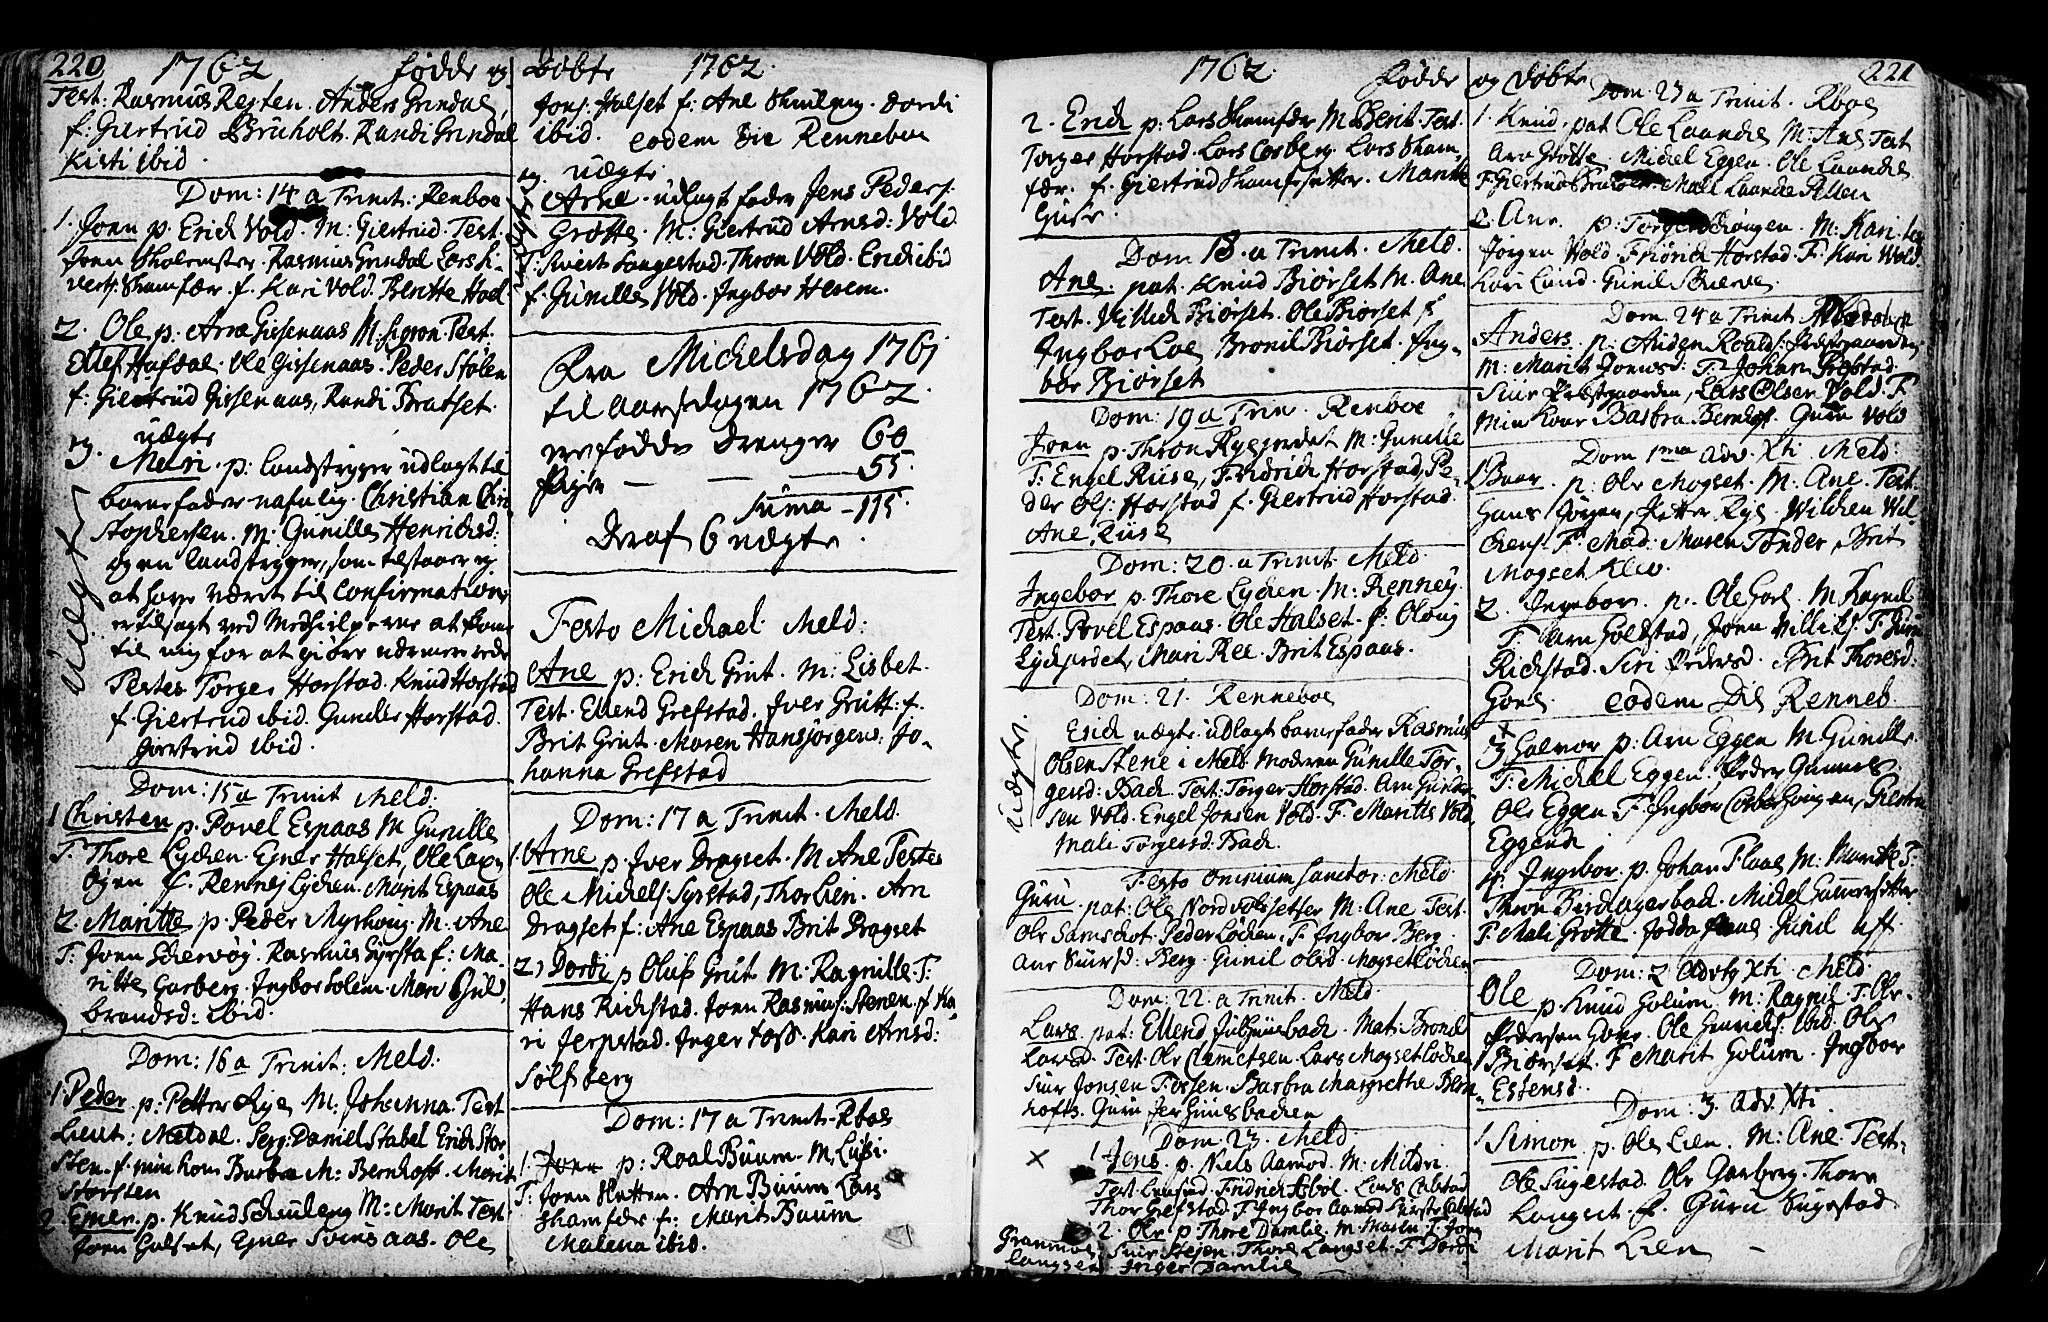 220 1762 fødde og Døbte 1762.
Test: Rasmus Regten. Anders Grindal
f: Giertrud Bruholt. Randi Grindal
Kisti ibid.
Dom: 14 a Trinit. Renboe
1. Joen p. Erich Vold. M: Giertrud. Test.
Joen Skolemster. Rasmus Grindal Lars
Skamfær. f. Kari Vold. Beritte Hoel
2. Ole p. Arne Gissenaas M. Sigron. Test.
Ellef Hafdal. Ole Gissenaas. Peder Stølen
f: Giertrud Gissenaas, Randi Bratset.
uægte
3. p: landstryger udlagt til
barnefader nafnlig. Christian Chri
stophersen. M: Gunille Henrichsd:
og en landstryger, som tilstaaer ej
at have været til Confirmation
er tilsagt ved Medhielperne at komme
til mig for at giøre nærmere rede
Testes Torger Horstad. Knud Horstad
f. Giertrud ibid. Gunille Horstad.
Giertrud ibid.
Uægte
Dom: 15 a Trinit Meld:
1 Christen p. Povel Espaas M Gunille
T. Thore Lychen. Ejner Halset, Ole Lax-
øyen f. Rennej Lychen. Marit Espaas
2. Maritte p. Peder Myrhoug. M. Ane
T: Joen Schervøg. Rasmus Syrsta f: Ma-
ritte Garberg. Ingbor Solem. Mari Gul-
brandsd: ibid.
Dom: 16 a Trinit. Meld.
1 Peder p: Petter Rye M. Johanna. Test
Lieut: Meldal. Serg: Daniel Stabel Erich Stor
sten. f. min kone Barbra M: Bernhoft. Marit
Storsten
2. Ejner. p. Knud Schiuleng M: Marit Test
Joen Halset, Ejner Svinsaas. Ole
Jons. Halset f: Ane Skiuleng. Dordi
ibid. eodem die Renneboe
3. uægte
Arne. udlagt fader Jens Peders.
Grøtte. M: Giertrud Arnsd: Vold
T: Sivert Langestad. Thron Vold. Erich ibid
f. Gunille Vold. Ingbor Hesem.
Fra Michelsdag 1761
til Aarsdagen 1762
ere fødde Drenger 60
Piger — — 55
Suma — 115.
Deraf 6 uægte.
Festo Michael. Meld:
Ane p: Erich Grut. M: Lisbet.
Test. Ellend Grefstad. Iver Grutt. f.
Brit Grut. Maren Hansjørgens: Jo-
hanna Grefstad
Dom: 17 a Trinit. Meld.
1. Arne p. Iver Dragset. M Ane Testes
Ole Michels. Syrstad, Thor Lien. Arn
Dragset f: Ane Espaas Brit Dragset
2) Dordi p Oluf Grut M: Ragnille T:
Hans Richstad. Joen Rasmus: Stenen. f. Ka
ri Jerpstad. Inger Foss. Kari Arnsd:
Solfsberg
Dom: 17 a Trinit. Rboe
1. Joen p: Roal Buum. M, Lussi.
T: Joen Hatten. Arn Buum Lars
Skamfær f: Marit Buum
Malena ibid.
1762. Fødde og Døbte 221
2. Erich p: Lars Skamfær M Berit. Test.
Torger Horstad. Lars Casberg. Lars Skam-
fær. f. Giertrud Skamfersetter. Maritte
Guse.
Dom 18. a Trinit. Meld.
Ane. pat. Knud Biørset M. Ane
Test. Villich Biørset. Ole Biørset f
Ingbor Loe Bronil Biørset. Ing-
bor Biørset
Dom: 19 a Trin. Renboe
Joen p. Thron Rygjerdet M: Gunille
T: Engel Riise, Fridrich Horstad, Pe-
der Ols: Horstad f. Giertrud Horstad
Ane Riise
Dom: 20. a Trinit. Meld
Ingebor p. Thore Lychen. M: Rennej
Test. Povel Espaas. Ole Halset. f: Oloug
Lychjerdet, Mari Ree. Brit Espaas.
Dom: 21. Renneboe
Uægte.
Erich uægte. udlagt barnefader Rasmus
Olsen Stene i Meld Moderen Gunille Tor-
gersd: Bach. Test: Torger Horstad. Arn Gunder
sen Vold. Engel Jonsen Vold. F. Maritte Vold
Mali Torgersd: Bach.
Festo Omnium Sanctor: Meld
Guru. pat: Ole Nordvolssetter M: Ane Test.
Ole Samskot. Peder Løchen. F. Ingbor Berg.
Ane Siursd: Berg. Gunil Olsd. Mogset Løchen
Dom: 22. a Trinit. Meld.
Lars pat: Ellend Jul Huusbach. Mat: Trond
Larsd. Test. Ole Clemetsen. Lars Mogset Løchen
Siur Jonsen Fossen. Barbra Margrethe Bern
hoft. Guru Jer Huusbachen
Dom: 23. Meld
× 1 Jens. p. Niels Aamod. M: Mildri.
Test. Lensmd. Fridrich Asbøl. Lars Calstad
Thor Grefstad. F. Ingbor Aamod Kirste Calstad
2. Ole p Thore Damlie. M. Maren. T. Joen
Granmoe. Siur Stejen. Thore Langset. F. Dordi
Langsen. Inger Damlie
Dom. 23 a Trinit. Rboe
1. Knud. pat Ole Laande M: Ane Test
Arn Grøtte. Michel Eggen. Ole Laande
F. Giertrud Mali Laande
2. Ane. p: M. Kari. test
Jørgen Vold. Fridrich Horstad. F. Kari Vold.
Kari Lund. Gunil
Dom. 24 a Trinit.
Anders p: Auden Roalds: Præstegaarden
M: Marit Joensd: T. Johan
Siur Præstgaarden, Lars Olsen Vold. F
Min Kone Barbra Bernhof. Guru Vold
Dom 1ma Adv. Xti. Meld:
1 Baar. p: Ole Mogset. M. Ane. Test.
Hans Jørgen, Petter Rye. Wilchen Wil-
chens. F. Mad. Maren Tønder, Brit
Mogset Klev.
2. Ingebor. p. Ole M Ragnil
T. Arn Goldstad, Joen Villiks. F. Guru
Richstad. Siri Pedersd. Brit Thoresd:
eodem Die Renneb.
3 Halvor p: Arn Eggen M Gunille.
T: Michel Eggen. Peder Gunnes
Ole Eggen F Ingbor
Eggen
4. Ingebor. p. Johan Flaae M: Maritte T.
Thron Birdagerbad. Michel Gunnesetter
F. Mali Grøtte. Jodda Gunil uft
Dom: 2 Adv. Xti. Meld.
Ole p. Knud Golum. M: Ragnil T. Ole
Pedersen Gone. Ole Henrichs. ibid. Ole
Biørset. F Marit Golum. Ingbor
Estensd.
Dom: 3. Adv. Xti.
1 Simon p. Ole Lien. M: Ane. Test.
Ole Sugestad. Ole Garberg. Thore
Langset. f. Guru Sugestad
Marit Lien —